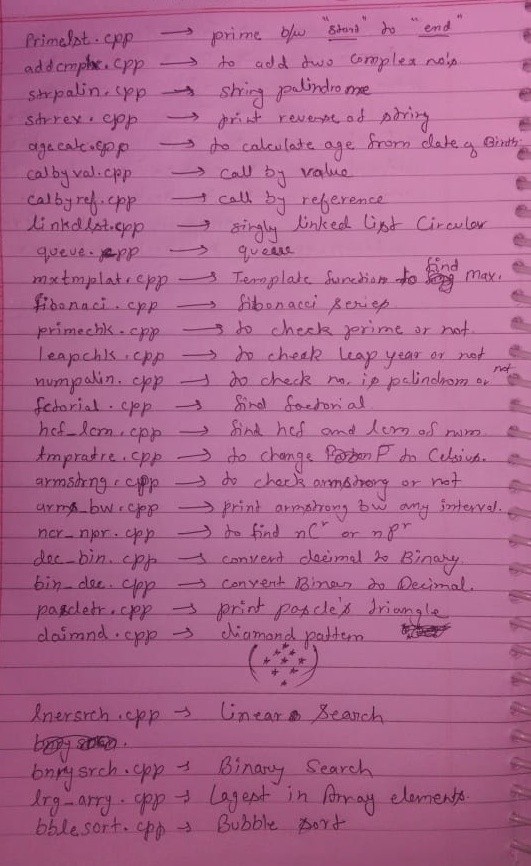 Primelst.cpp → prime b/w "start" to "end"
addcmplx.cpp → to add two complex no's
strpalin.cpp → string palindrome
strrex.cpp → print reverse of string
agecalc.cpp → to calculate age from date of Birth
calbyval.cpp → call by value
calbyref.cpp → call by reference
linkdlst.cpp → singly linked list Circular
queue.cpp → queue
mxtmplat.cpp → Template function to find Max.
fibonaci.cpp → fibonacci series
primechk.cpp → to check prime or not.
leapchk.cpp → to check leap year or not
numpalin.cpp → to check no. is palindrom or not
fctorial.cpp → find factorial
hcf_lcm.cpp → find hcf and lcm of num.
tmpratre.cpp → to change F to Celsius.
armstrng.cpp → to check armstrong or not
arms_bw.cpp → print armstrong bw any interval.
ncr_npr.cpp → to find nCr or nPr
dec_bin.cpp → convert decimal to Binary.
bin_dec.cpp → convert Binary to Decimal.
pascletr.cpp → print pascle's triangle
daimnd.cpp → diamand pattern
lnersrch.cpp → Linear Search
bnrysrch.cpp → Binary Search
lrg_arry.cpp → Lagest in Array elements.
bblesort.cpp → Bubble sort